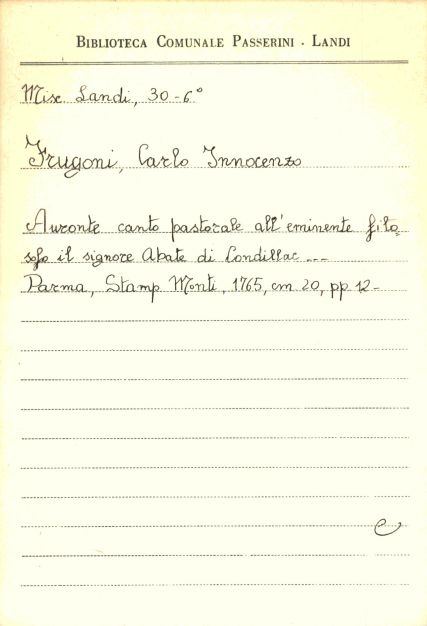 BIBLIOTECA COMUNALE PASSERINI - LANDI
Misc. Landi, 30-6°
Frugoni, Carlo Innocenzo
Auronte canto pastorale all'eminente filo=
sofo il signore Abate di Condillac ---
Parma, Stamp. Monti, 1765, cm 20, pp 12-
e